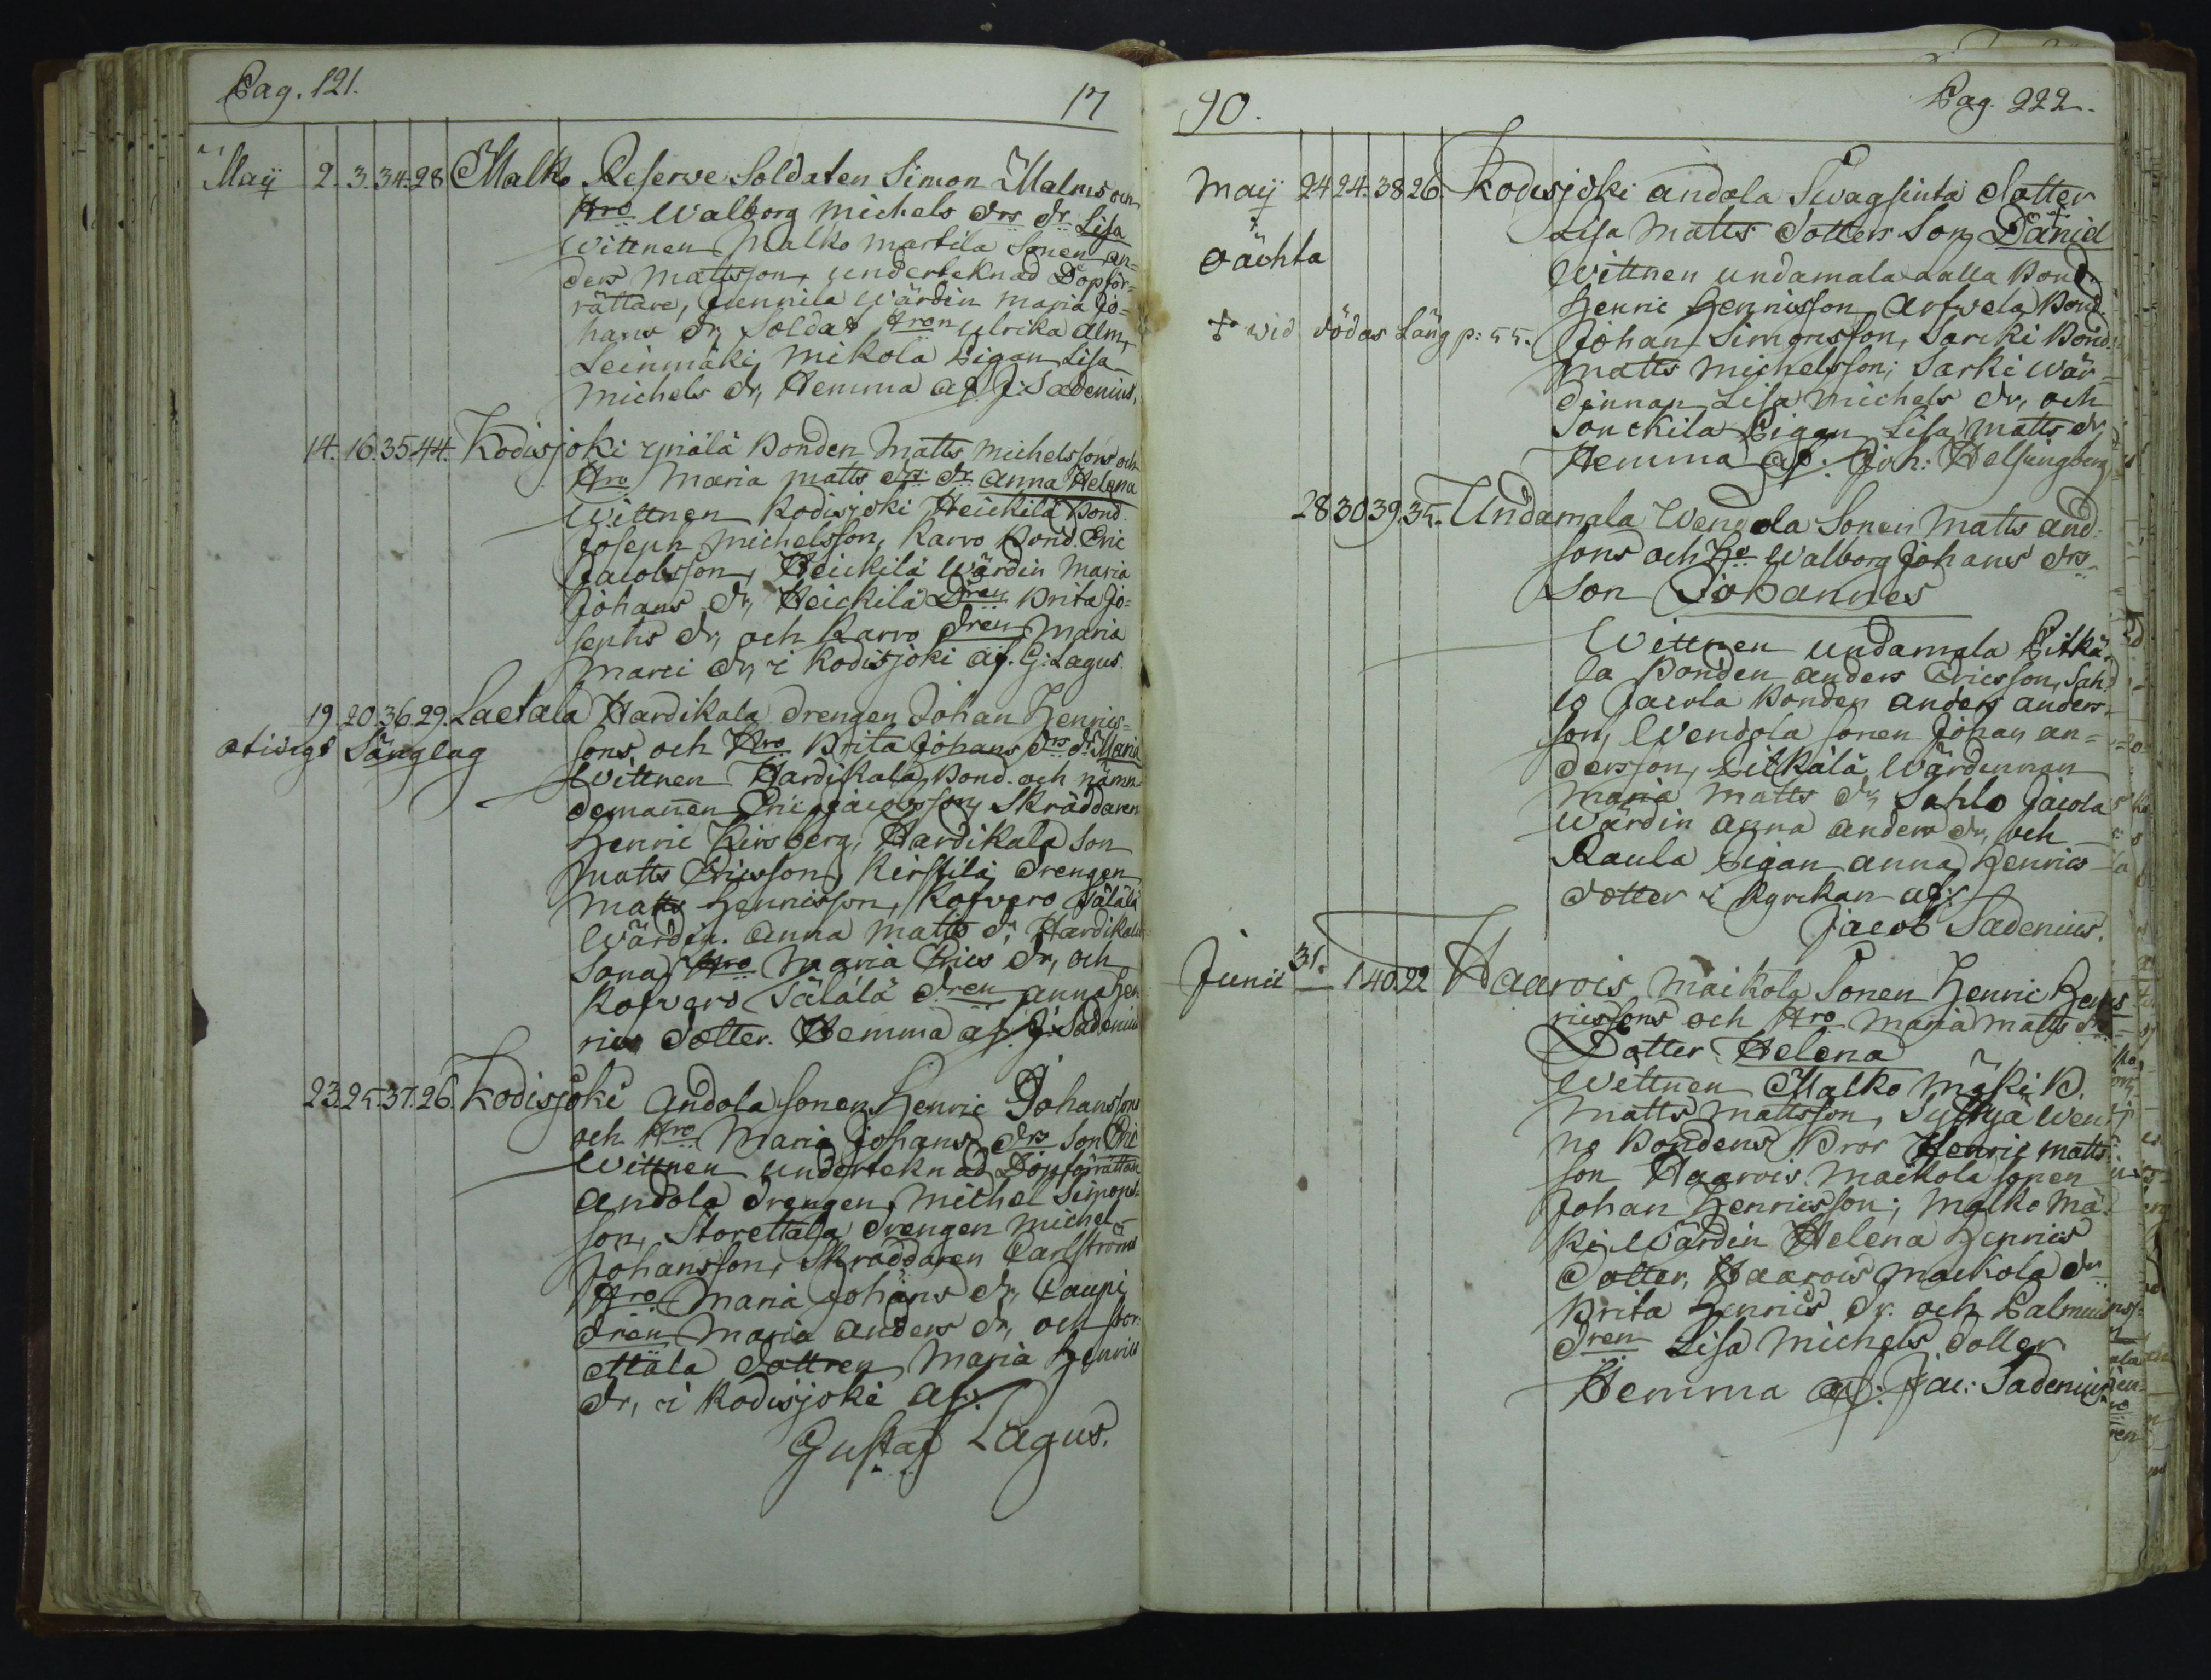 Pag. 121.
17
Maÿ 2. 3. 34. 28 Malko Reserve Soldaten Simon Malms och
Hro Walborg Michels drs dr Lisa
Wittnen Malko Martila Sonen An=
ders Mattsson, underteknad Döpför=
rättare, Junnila Wärdin Maria Jo=
hans dr, Soldat Hron Ulrika Alm,
Leinmäki Mikola Pigan Lisa
Michels dr, Hemma af J: Sadenius.
14. 16. 35. 44. Kodisjoki Yrjälä Bonden Matts Michelssons och
Hro Maria Matts drs dr Anna Helena
Wittnen Kodisjoki Heickilä Bond.
Joseph Michelsson, Karro Bond Eric
Jacobsson, Heickilä Wärdin Maria
Johans dr, Heickilä Dren Brita Jo=
sephs dr, och Karro dren Maria
Marci dr, i Kodisjoki af. G: Lagus.
19. 20. 36. 29. Laetala Hardikala drengen Johan Henrics=
otidigt Sänglag sons, och Hro Brita Johans drs dr Maria
Wittnen Hardikala Bond. och nämn
demanen Eric Jacobsson, Skräddaren
Henric Hirsberg, Hardikala Son
Matts Ericsson, Kirstilä drengen
Matts Henricsson, Kofvero Sälälä
Wärdin. Anna Matts dr Hardikala
Sona Hro Maria Erics dr, och
Kofvero Sälälä dren Anna Hen
rics dotter. Hemma af. J: Sadenius
23. 25. 37. 26. Kodisjoki Andola Sonen Henric Johanssons
och Hro Maria Johans drs Son Eric
Wittnen undertecknad Döpförrättare
Andola drengen Michel Simons=
son, Storettala drengen Michel
Johansson, Skräddaren Carlströms
Hro Maria Johans dr, Caupi
dren Maria Anders dr, och stor
ettäla dottren Maria Henrics
dr, i Kodisjoki af.
Gustaf Lagus.
90.
Pag. 222.
Maij 24 24. 38 26. Kodisjoki Andola Swagsinta dotter
Oächta Lisa Matts dotters Son Daniel
Wittnen Undamala Lalla Bond.
Henric Henricsson, Arfvela Bond.
† wid dödas Läng p: 55. Johan Simonsson, Sarcki Bond:
Matts Michelsson; Sarki Wär=
dinnan Lisa Michels dr, och
Souckila Pigan Lisa Matts dr
Hemma af. Joh: Helsingberg
28 30 39. 35. Undamala Wendola Sonen Matts And.
sons och Ho Walborg Johans drs
Son Johannes
Wittnen Undamala Pitkä=
la Bonden Anders Ericsson, Sah
lo Jacola Bonden Anders Anders=
son, Wendola Sonen Johan An=
dersson, Pitkälä Wärdinnan
Maria Matts dr, Sahlo Jacola
Wärdin Anna Anders dr, och
Raula Pigan Anna Henrics
dotter i Kyrckan af:
Jacob Sadenius.
Junii 31. 1 40. 22 Haarois Maikola Sonen Henric Hen
ricssons och Hro Maria Matts drs
Dotter Helena
Wittnen Malko Mäki B.
Matts Mattsson, Sythyä Wen
no Bondens Bror Henric Matts
son Haarois Maikola sonen
Johan Henricsson; Malko Mä
ki Wärdin Helena Henrics
Dotter, Haarois Maikola dr
Brita Henrics dr. och Palmu
dren Lisa Michels dotter
Hemma af: Jac: Sadenius